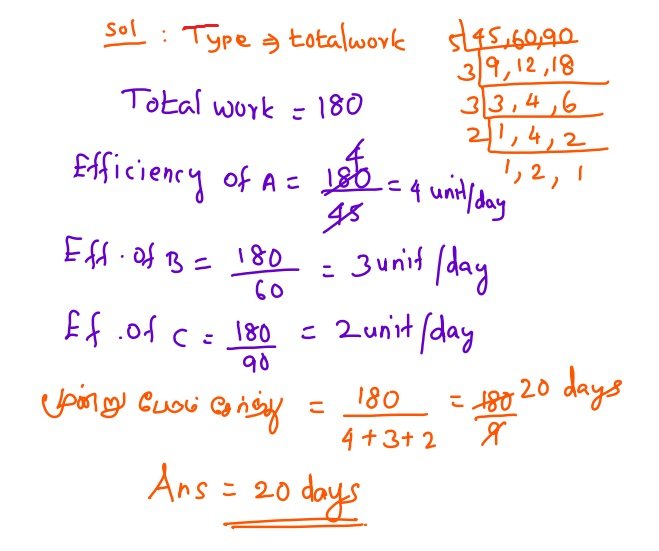 Sol : Type ⇒ totalwork
5 | 45, 60, 90
3 | 9, 12, 18
3 | 3, 4, 6
2 | 1, 4, 2
1, 2, 1
Total work = 180
Efficiency of A = 180/45 4 = 4 unit/day
Eff. of B = 180/60 = 3 unit/day
Ef. of C = 180/90 = 2 unit/day
மூன்று பேரும் சேர்ந்து = 180/4+3+2 = 180/9 20 days
Ans = 20 days